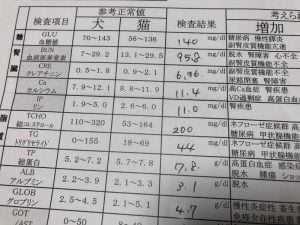 参考正常値 考えら
検査項目 犬 猫 検査結果 増加
糖 GLU 血糖値 70~143 56~136 140 mg/dl 糖尿病 慢性膵炎 副腎皮質機能亢進
腎臓 BUN 血液尿素窒素 7~29.2 13.1~29.5 95.8 mg/dl 脱水 腎障害 心不全 副腎皮質機能不全
CRE クレアチニン 0.5~1.8 0.9~2.1 6.36 mg/dl 腎不全
Ca カルシウム 7.9~12.1 8.8~11.9 11.4 mg/dl 高Ca血症 腎疾患 VD過剰症
IP リン 1.9~5.0 2.6~6.0 11.0 mg/dl 腎疾患
脂質 TCHO 総コレステロール 110~320 53~164 200 mg/dl ネフローゼ症候群 糖尿病 甲状腺機能
TG トリグリセライド 0~155 18~69 44 mg/dl ネフローゼ症候群 糖尿病 甲状腺機能
TP 総蛋白 5.2~7.2 5.7~7.8 7.8 g/dl 高蛋白血症 感染
ALB アルブミン 2.2~3.9 2.1~3.3 3.1 g/dl 脱水 腫瘍 ショ
GLOB グロブリン 2.5~4.5 2.1~5.1 4.7 g/dl 慢性炎症性 寄生 免疫介在性疾患
GOT /AST 0~50